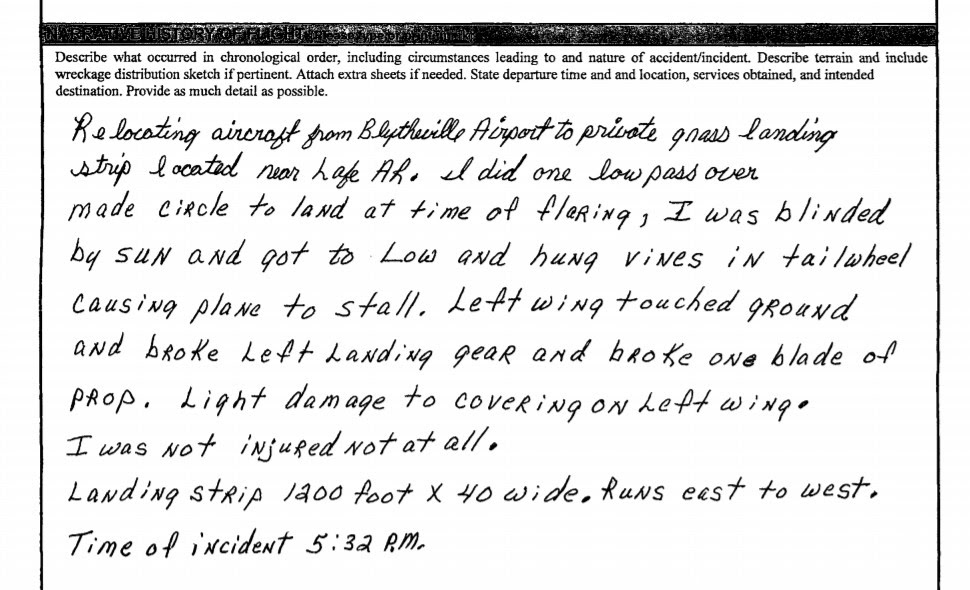 NARRATIVE HISTORY OF FLIGHT
Describe what occurred in chronological order, including circumstances leading to and nature of accident/incident. Describe terrain and include
wreckage distribution sketch if pertinent. Attach extra sheets if needed. State departure time and and location, services obtained, and intended
destination. Provide as much detail as possible.
Relocating aircraft from Blytheville Airport to private grass landing
strip located near Lafe AR. I did one low pass over
made circle to land at time of flaring, I was blinded
by sun and got to Low and hung vines in tailwheel
causing plane to stall. Left wing touched ground
and broke Left Landing gear and broke one blade of
prop. Light damage to covering on Left wing.
I was not injured not at all.
Landing strip 1200 foot X 40 wide. Runs east to west.
Time of incident 5:32 P.M.